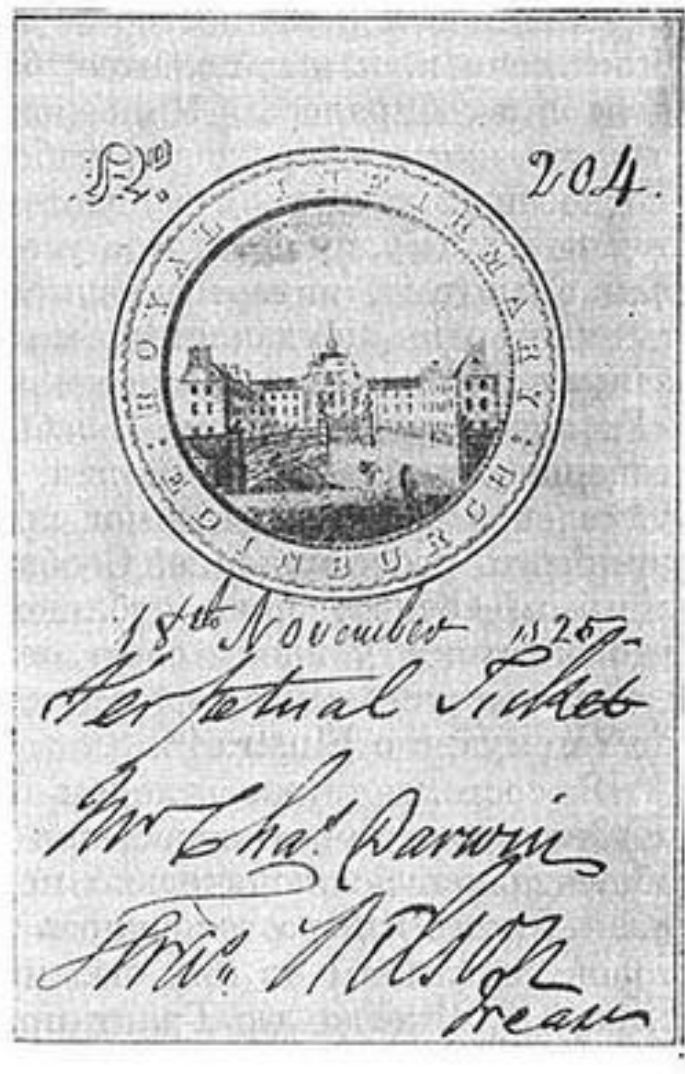 No. 204.
ROYAL INFIRMARY
EDINBURGH
18th November 1825
Perpetual Ticket
Mr Chas. Darwin
Wilson
Treasr